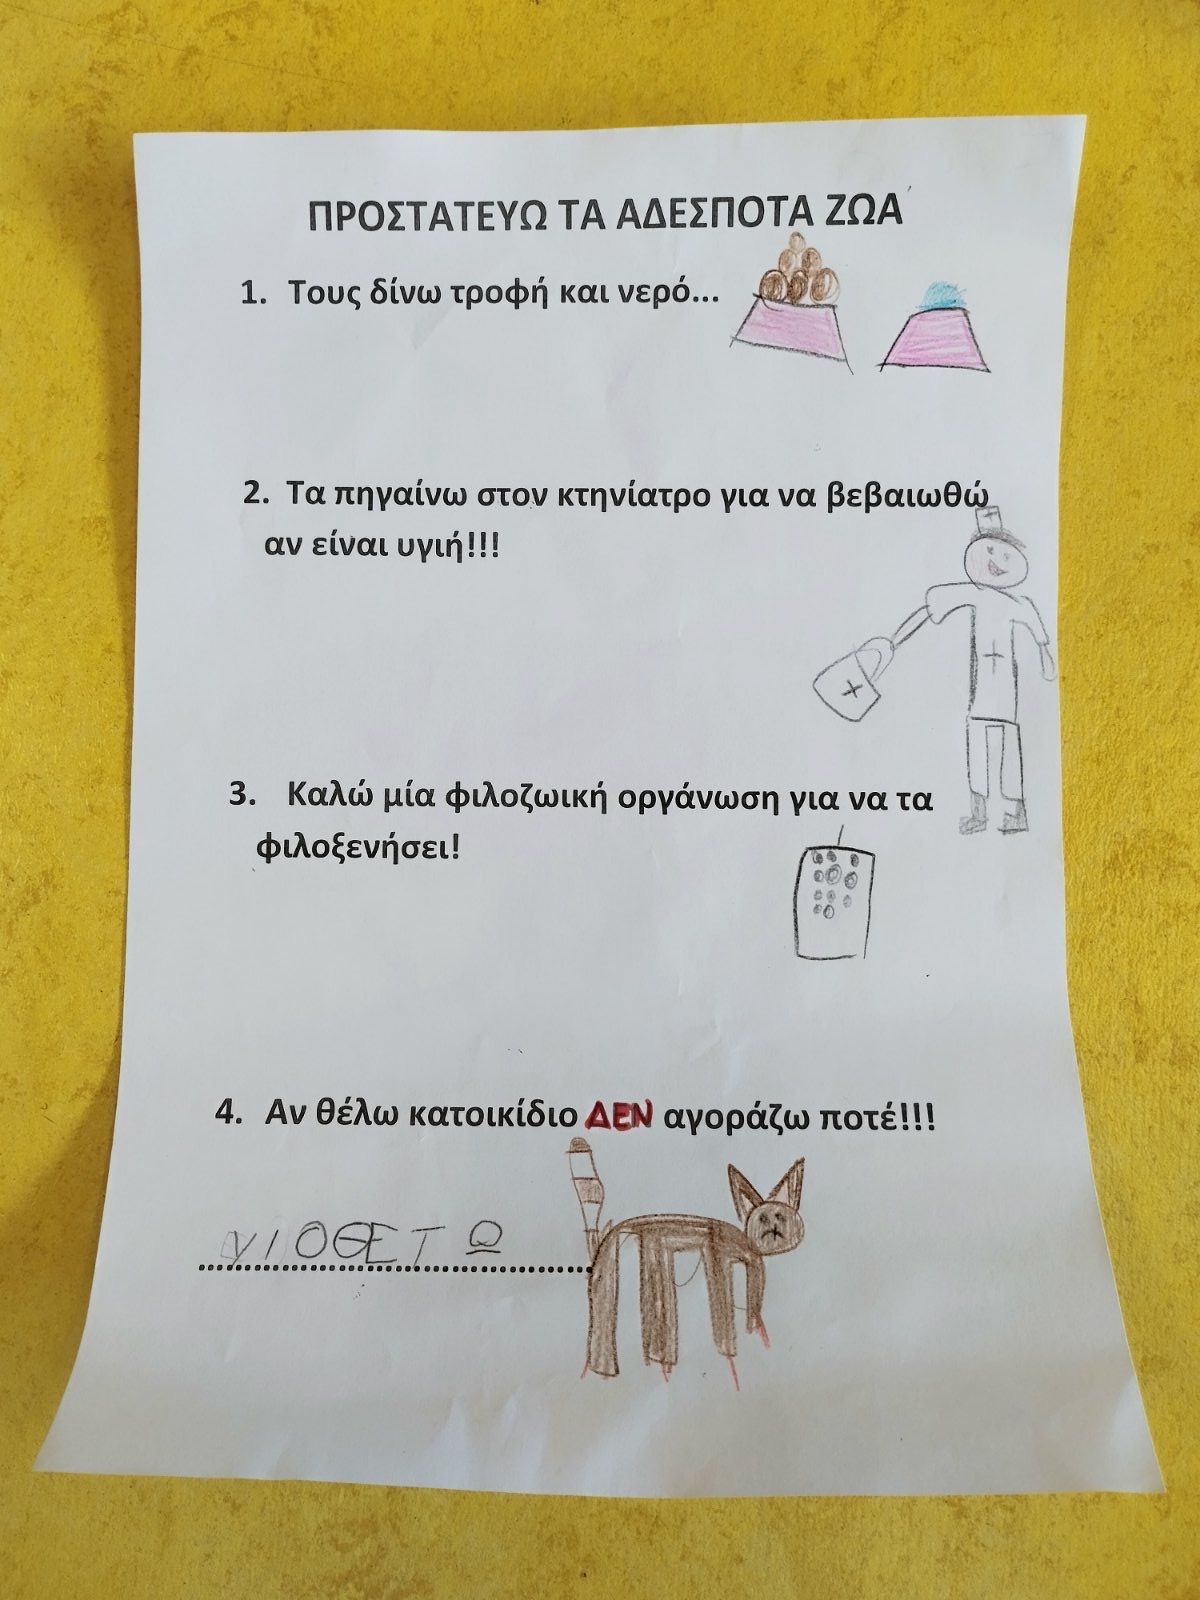 ΠΡΟΣΤΑΤΕΥΩ ΤΑ ΑΔΕΣΠΟΤΑ ΖΩΑ
1. Τους δίνω τροφή και νερό...
2. Τα πηγαίνω στον κτηνίατρο για να βεβαιωθώ
αν είναι υγιή!!!
3. Καλώ μία φιλοζωική οργάνωση για να τα
φιλοξενήσει!
4. Αν θέλω κατοικίδιο ΔΕΝ αγοράζω ποτέ!!!
ΥΙΟΘΕΤΩ